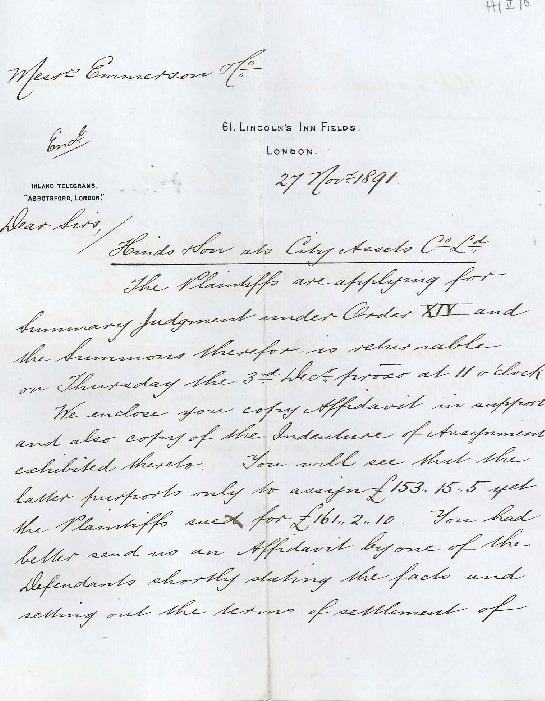 Messrs Emmerson & Co
61, LINCOLN'S INN FIELDS.
LONDON.
27 Novr. 1891.
INLAND TELEGRAMS.
"ABBOTSFORD, LONDON."
Dear Sirs,
Hinds & Son ats City Assets Co. Ld.
The Plaintiffs are applying for
Summary Judgment under Order XIV and
the Summons therefor is returnable
on Thursday the 3rd Dect. proxo at 11 o'clock
We enclose you copy Affidavit in support
and also copy of the Indenture of Assignment
exhibited thereto. You will see that the
latter purports only to assign £153.15.5 yet
the Plaintiffs sue for £161..2.10. You had
better send us an Affidavit by one of the
Defendants shortly stating the facts and
setting out the terms of settlement of